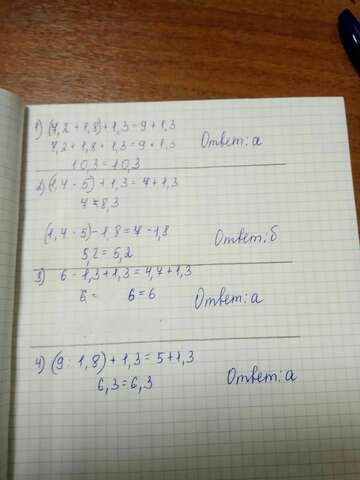 1) (7,2 + 1,8) + 1,3 = 9 + 1,3
7,2 + 1,8 + 1,3 = 9 + 1,3 Ответ: а
10,3 = 10,3
2) (1,4 · 5) + 1,3 = 7 + 1,3
7 = 8,3
(1,4 · 5) - 1,8 = 7 - 1,8 Ответ: б
5,2 = 5,2
3) 6 - 1,3 + 1,3 = 4,7 + 1,3
6 = 6 = 6 Ответ: а
4) (9 : 1,8) + 1,3 = 5 + 1,3
6,3 = 6,3 Ответ: а